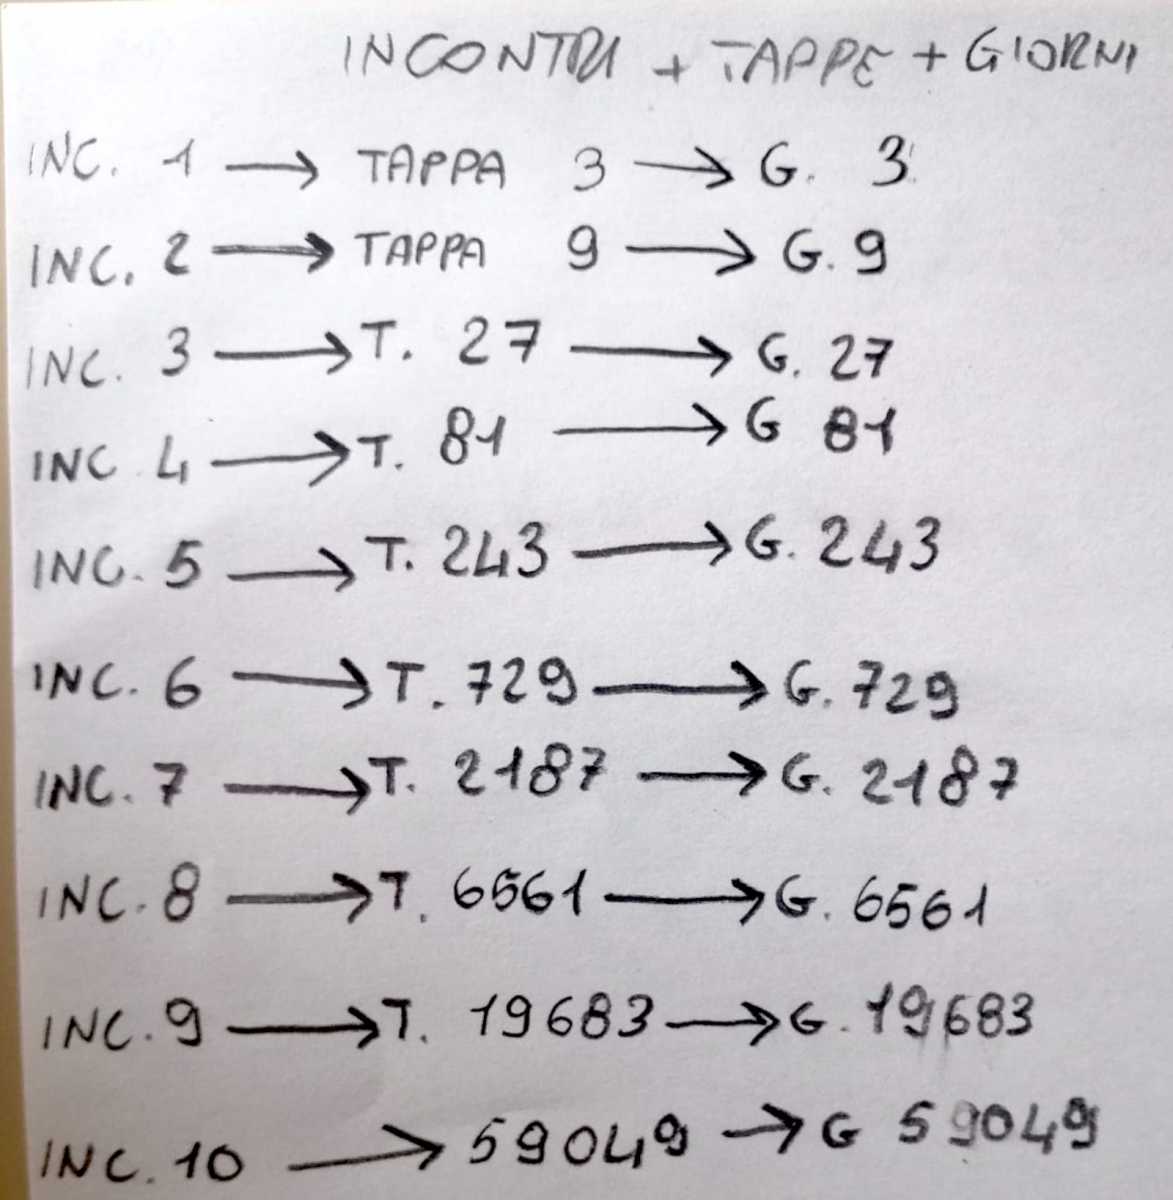 INCONTRI + TAPPE + GIORNI
INC. 1 → TAPPA 3 → G. 3
INC. 2 → TAPPA 9 → G. 9
INC. 3 → T. 27 → G. 27
INC 4 → T. 81 → G 81
INC. 5 → T. 243 → G. 243
INC. 6 → T. 729 → G. 729
INC. 7 → T. 2187 → G. 2187
INC. 8 → T. 6561 → G. 6561
INC. 9 → T. 19683 → G. 19683
INC. 10 → 59049 → G 59049